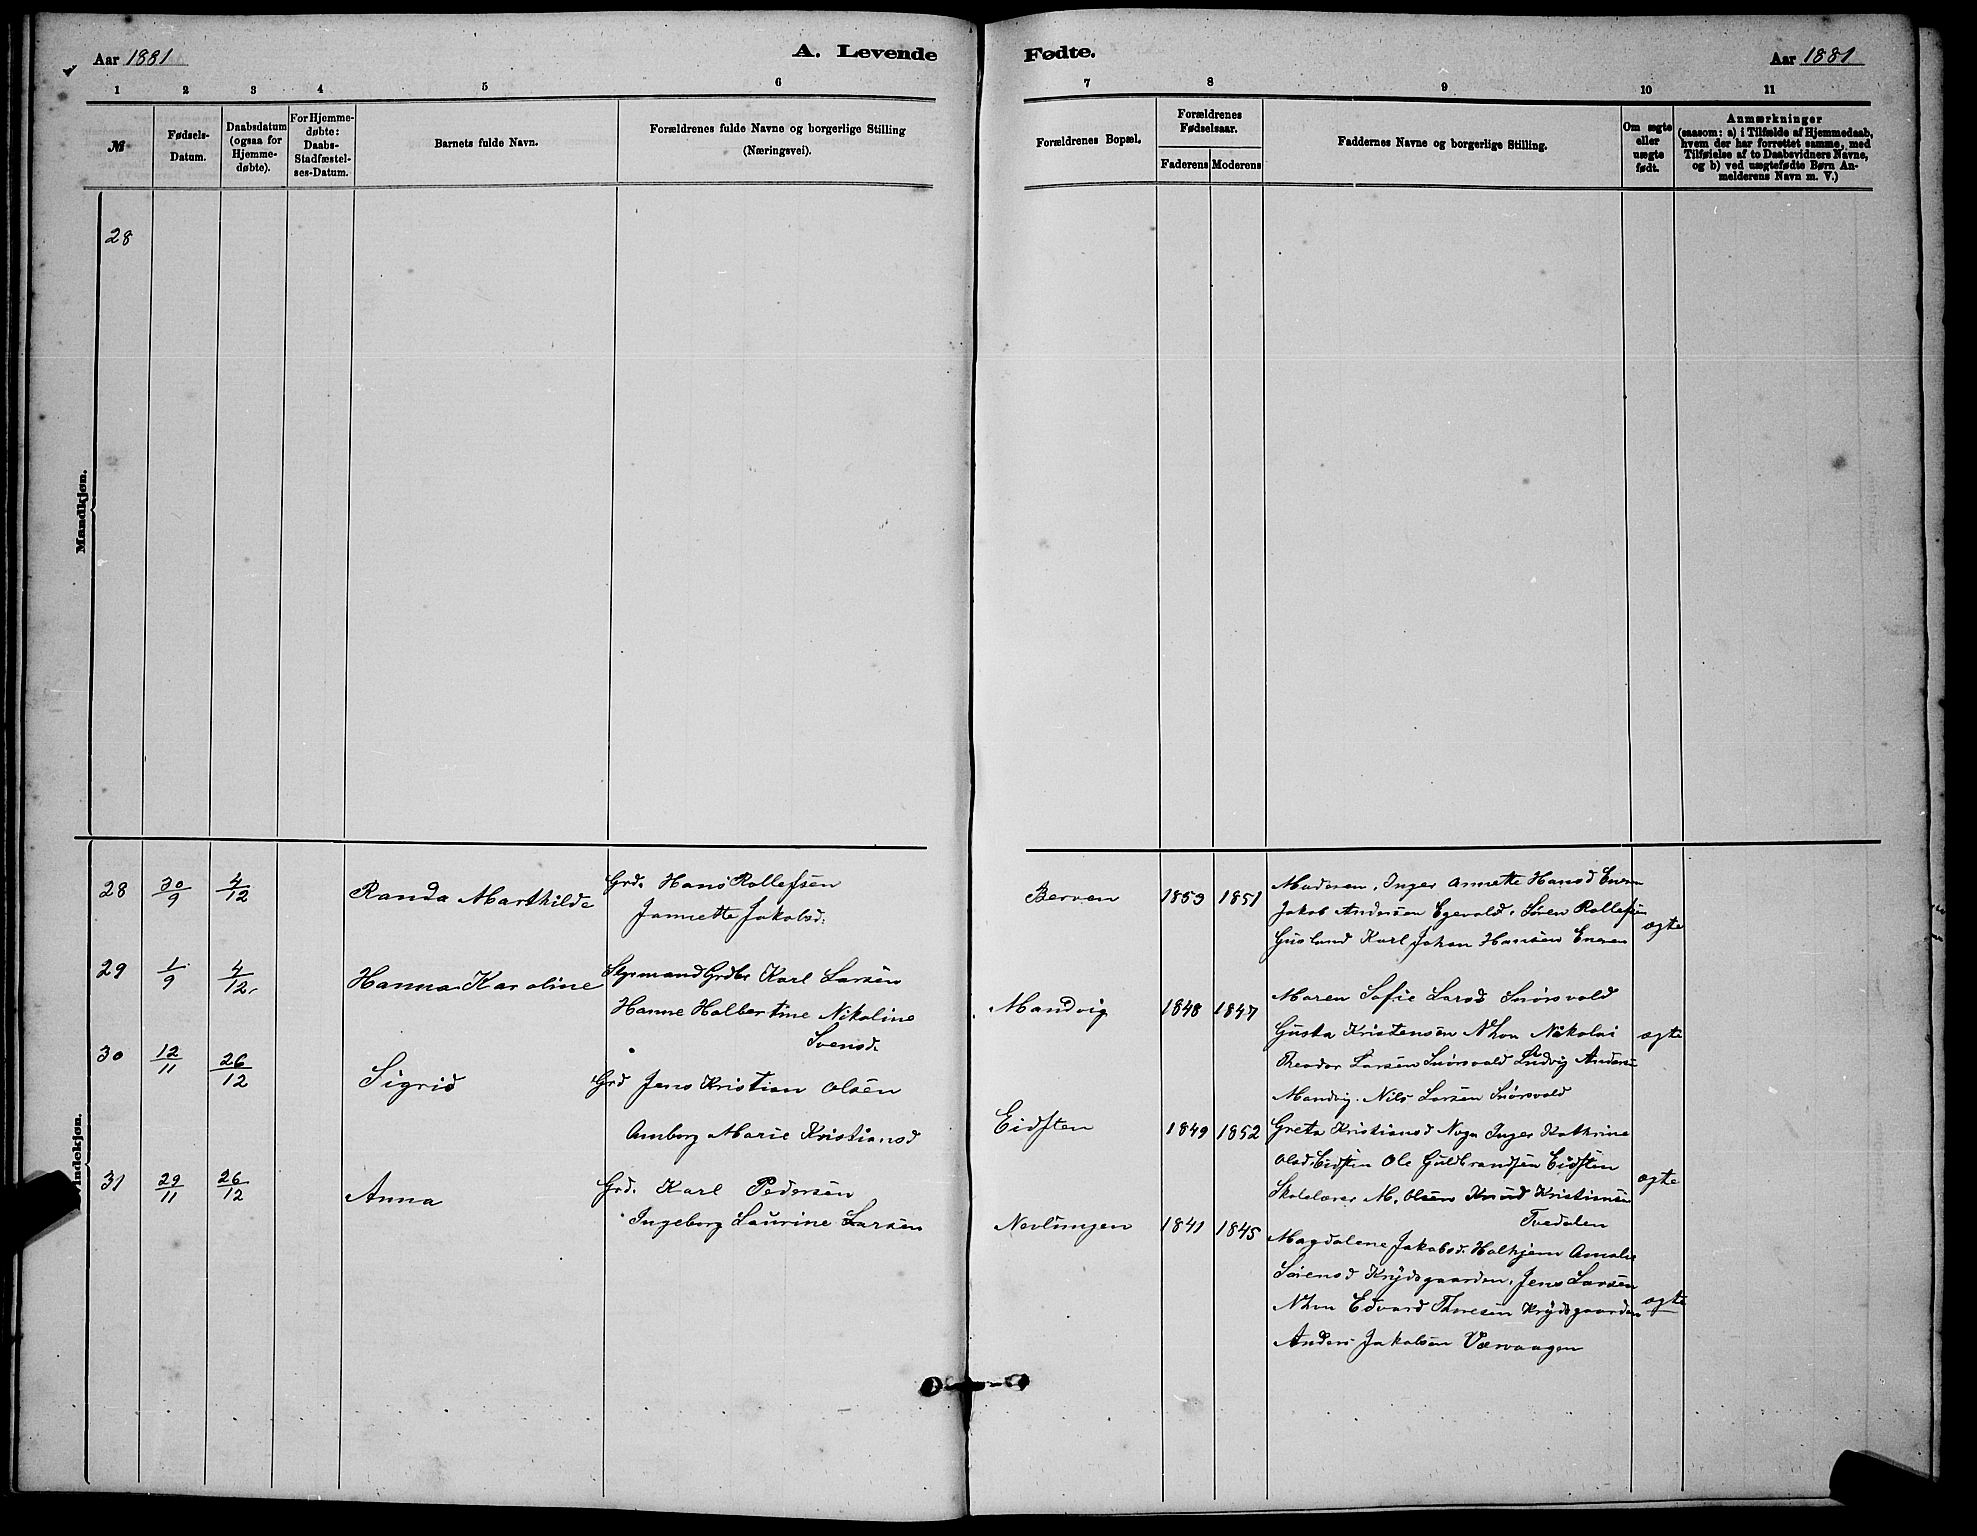 Aar 1881
A. Levende
Fødte.
Aar 1881
1 2 3 4 5 6 7 8 9 10 11
№
Fødsels-
Datum.
Daabsdatum
(ogsaa for
Hjemme-
døbte).
For Hjemme-
døbte:
Daabs-
Stadfæstel-
ses-Datum.
Barnets fulde Navn.
Forældrenes fulde Navne og borgerlige Stilling
(Næringsvei).
Forældrenes Bopæl,
Forældrenes
Fødselsaar.
Faderens Moderens
Faddernes Navne og borgerlige Stilling.
Om ægte
eller
uægte
født.
Anmærkninger
(saasom: a) i Tilfælde af Hjemmedaab,
hvem der har forrettet samme, med
Tilføielse af to Daabsvidners Navne,
og b) ved uægtefødte Børn An-
melderens Navn m. V.)
Mandkjøn.
28
Kvindekjøn.
28 30/9 4/12
Randa Marthilde
Grd. Hans Rollefsen
Jannette Jakobsd.
Berven 1853 1851
Moderen, Inger Annette Hansd
Jakob Andersen Egevold. Sören Rollefsen
Gusland Karl Johan Hansen
ægte
29 1/9 4/12
Hanna Karoline
Styrmand Grdbr Karl Larsen
Hanne Halbertine Nikoline
Svensd.
Mandvig 1848 1847
Maren Sofie Larsd Snörsvold
Gusta Kristensen Nikolai
Theodor Larsen Snörsvold Ludvig Anders
Mandvig. Nils Larsen Snörsvold
ægte
30 12/11 26/12
Sigrid
Grd Jens Kristian Olsen
Amborg Marie Kristiansd
Eidsten 1849 1852
Greta Kristiansd Inger Kathrine
Olsd. Eidsten Ole Guldbrandsen Eidsten
Skolelærer M. Olsen Knud Kristiansen
Tvedalen
ægte
31 29/11 26/12
Anna
Grd. Karl Pedersen
Ingeborg Laurine Larsen
Nevlungen 1841 1845
Magdalene Jakobsd. Halhjem Amalie
Sörensd Krydsgaarden, Jens Larsen
Edvard Thoresen Krydsgaarden
Anders Jakobsen Værvaagen
ægte